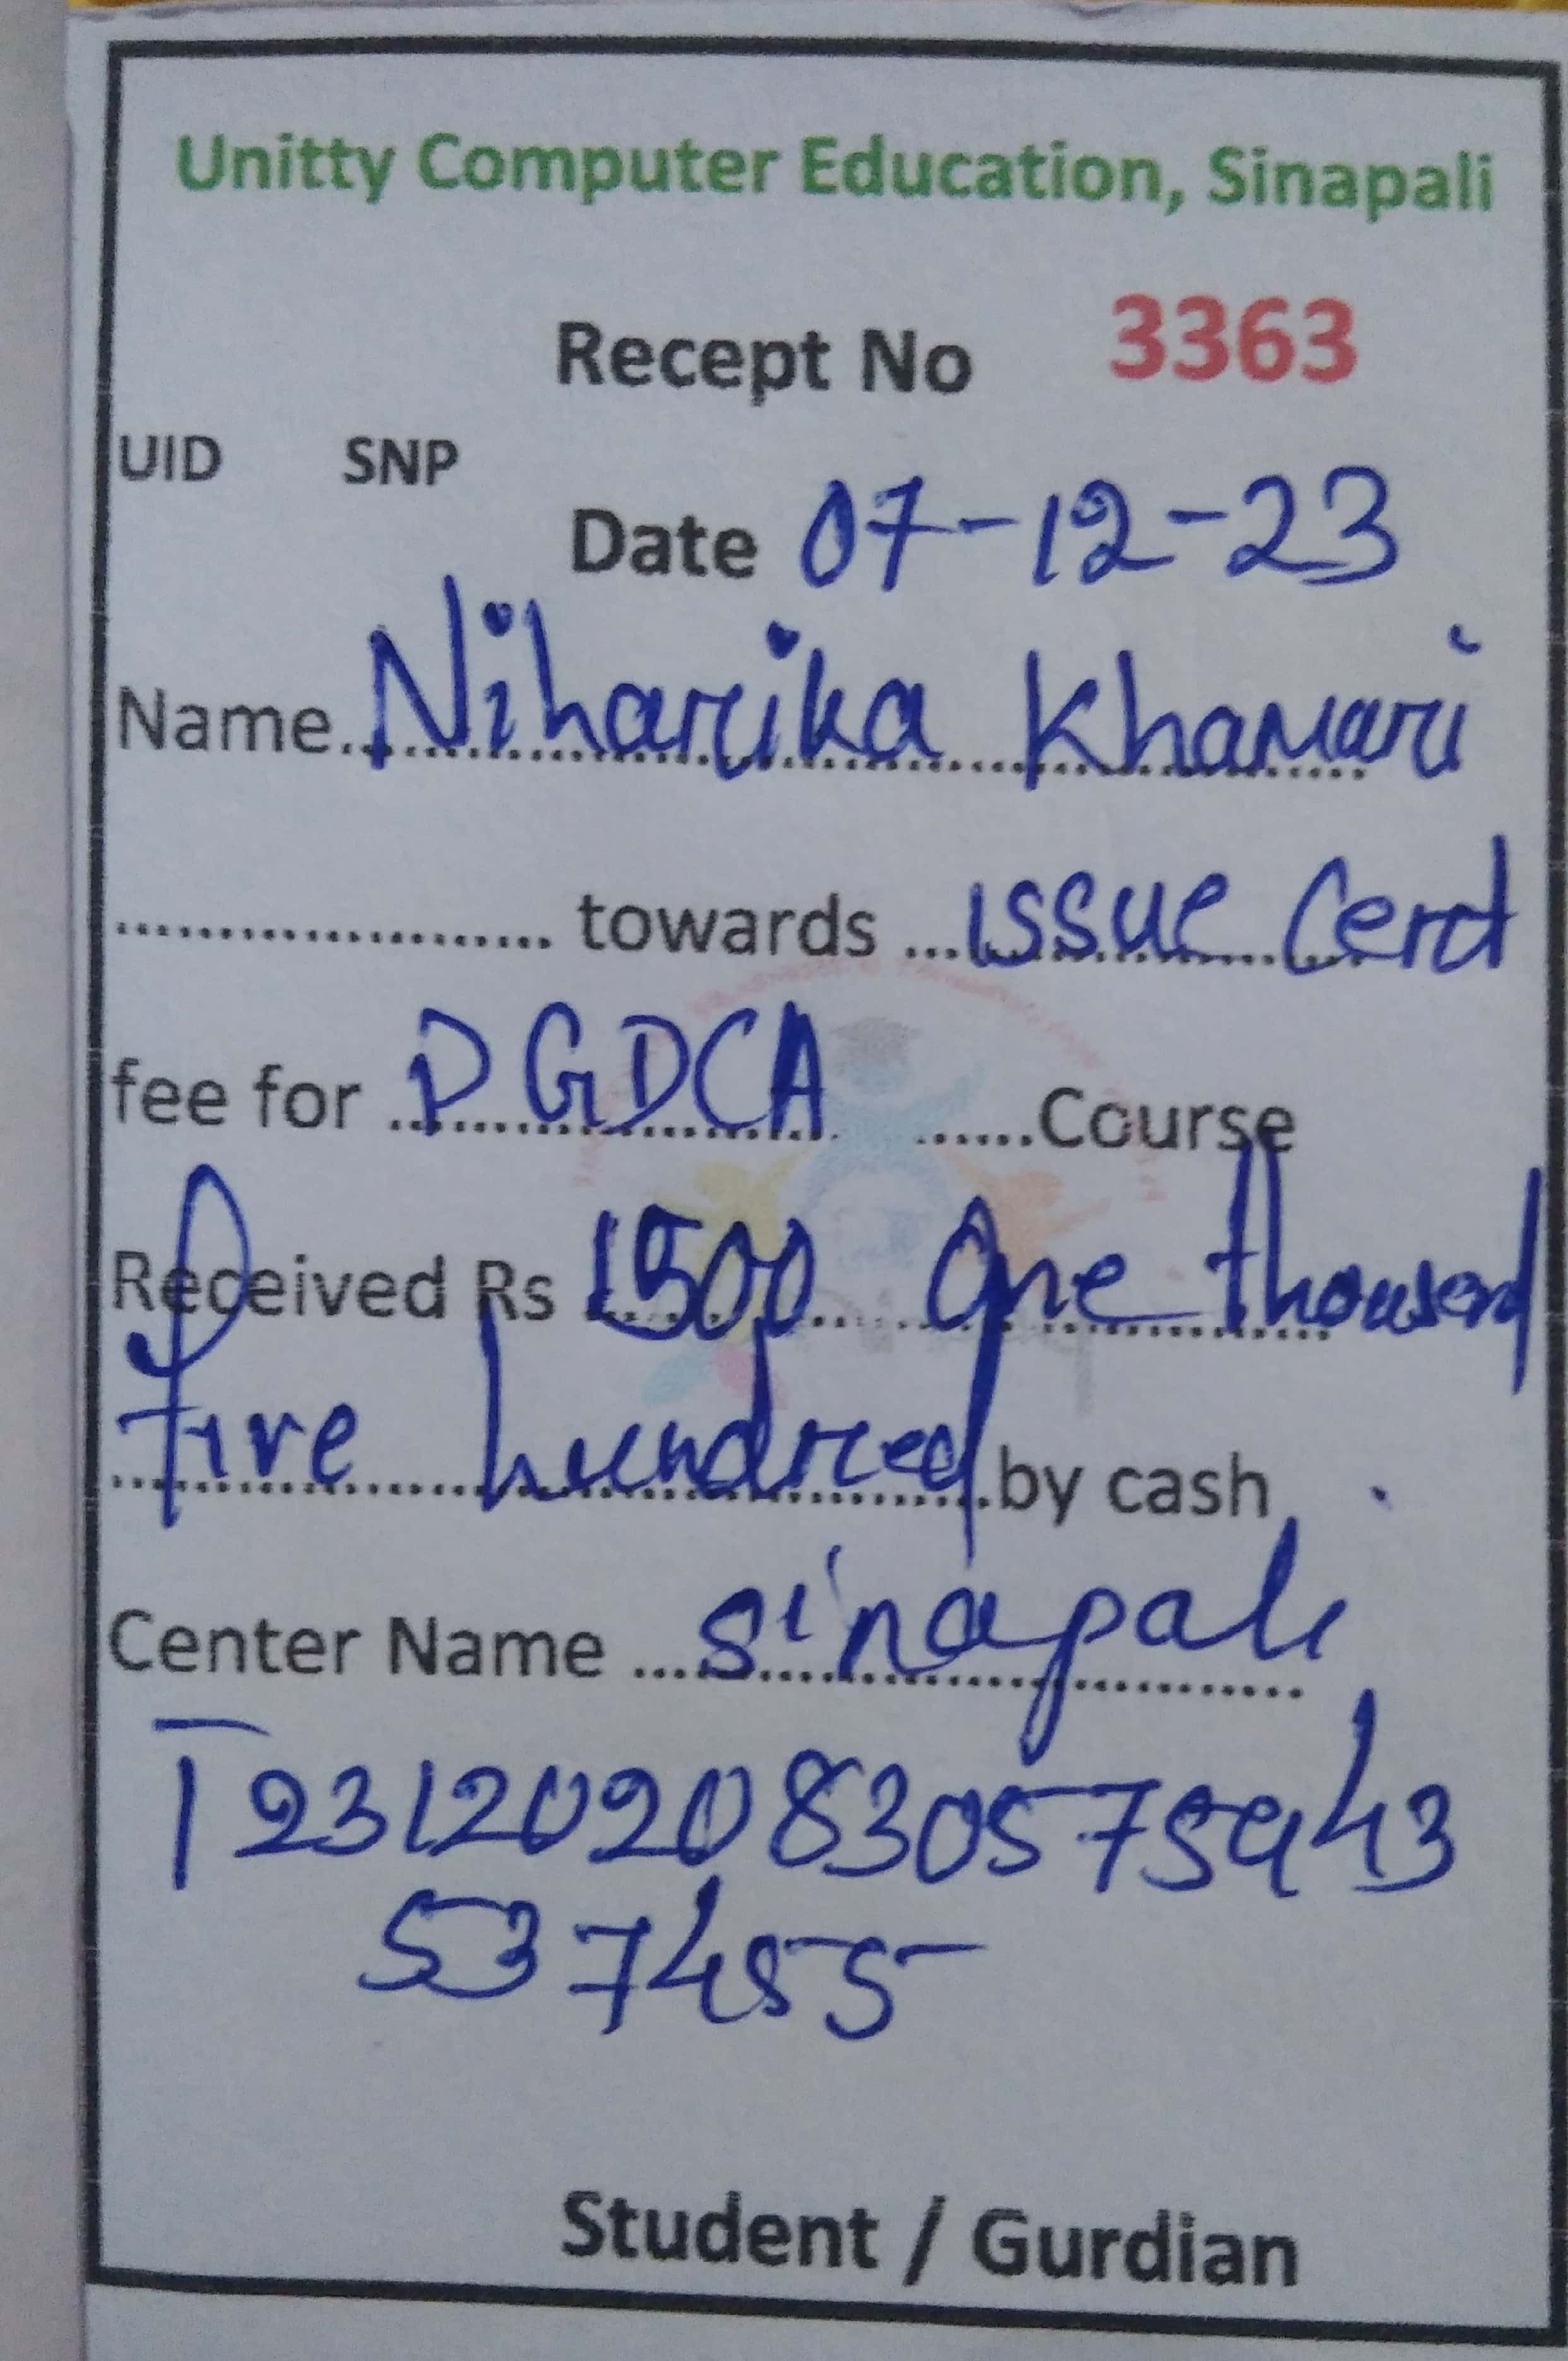 Unitty Computer Education, Sinapali
Recept No 3363
UID SNP
Date 07-12-23
Name Niharika Khamari
towards issue Cert
fee for PGDCA Course
Received Rs 1500 One thousand
five hundred by cash
Center Name sinapali
T2312020830575943
537455
Student / Gurdian